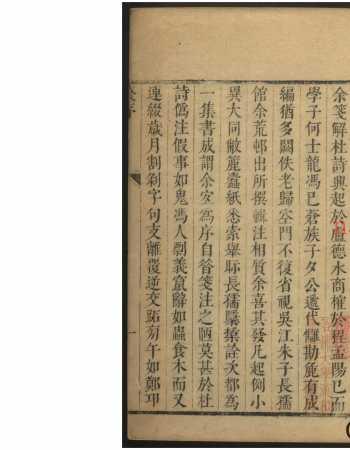 余箋解杜詩興起於盧德水商榷於程孟陽已而
學子何士龍馮已蒼族子夕公遞代讎勘麁有成
編猶多闕佚老歸空門不復省視吳江朱子長孺
館余荒邨出所撰輯注相質余喜其發凡起例小
異大同敝簏蠹紙悉索舉示長孺檃括詮次都為
一集書成謂余宜為序自昔箋注之陋莫甚於杜
詩偽注假事如鬼馮人剽義竄辭如蟲食木而又
連綴歲月割剝字句支離覆逆交跖旁午如鄭卬